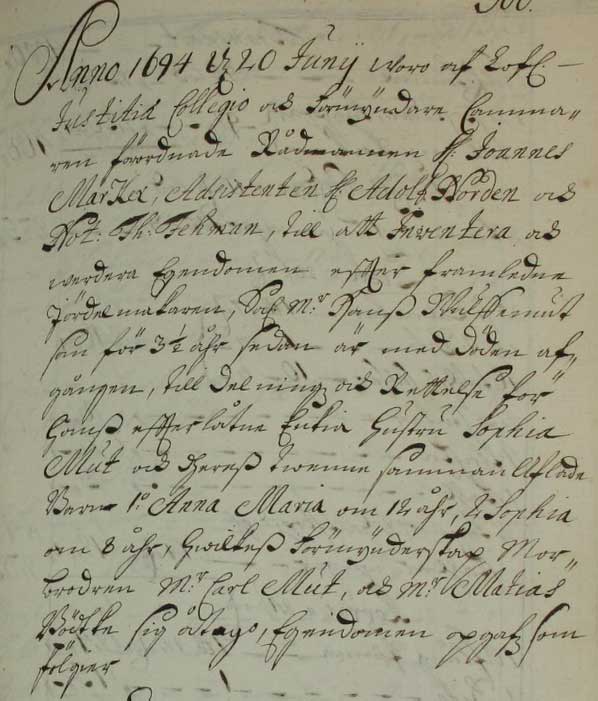 Anno 1694 d 20 Junij woro af Lofl. –
Justitiæ Collegio och Förmyndare Camma-
ren förordnade Rådmannen H: Joannes
Marker, Adsistenten H: Adolf Norden och
Not: Th: Fehman, till att Inventera och
werdera Egendomen effter framledne
Jördelmakaren, Sal. Mr Hanß
son för 3½ åhr sedan är med döden af-
gången, till delning och Rettelse för
hanß effterlåtne Enkia Hustru Sophia
Mut och dereß twenne samman Aflade
Barn 1o Anna Maria om 12 åhr, 2 Sophia
om 8 åhr, hwilkeß Förmynderskap Mor-
brodren Mr: Carl Mut, och Mr: Matias
sig åtago, Egendomen opgafz som
fölgier